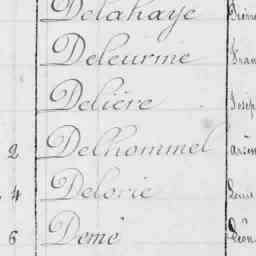 Delahaye
Deleurme
Delière
2 Delhommel
4 Delorie
6 Demé